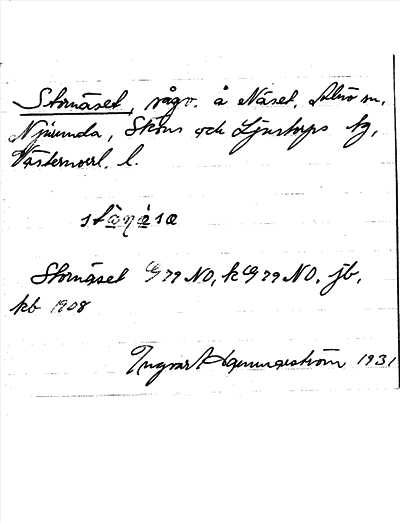 Stornäset, sågv. å Näset, Alnö sn,
Njurunda, Sköns och Ljustorps tg,
Västernorrl. l.
Stornäset G 79 NO, k G 79 NO. jb,
kb 1908
Ingvar Hammarström 1931